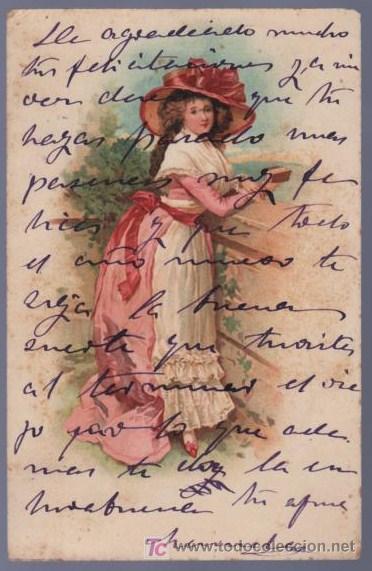 He agradecido mucho
tus felicitaciones y a mi
vez deseo que tu
hayas pasado unas
pascuas muy fe
lices y que todo
el año nuevo te
siga la buena
suerte que tuvistes
al terminar el vie
jo por lo que ade
mas te doy la en
horabuena tu afma
TC www.todocoleccion.net